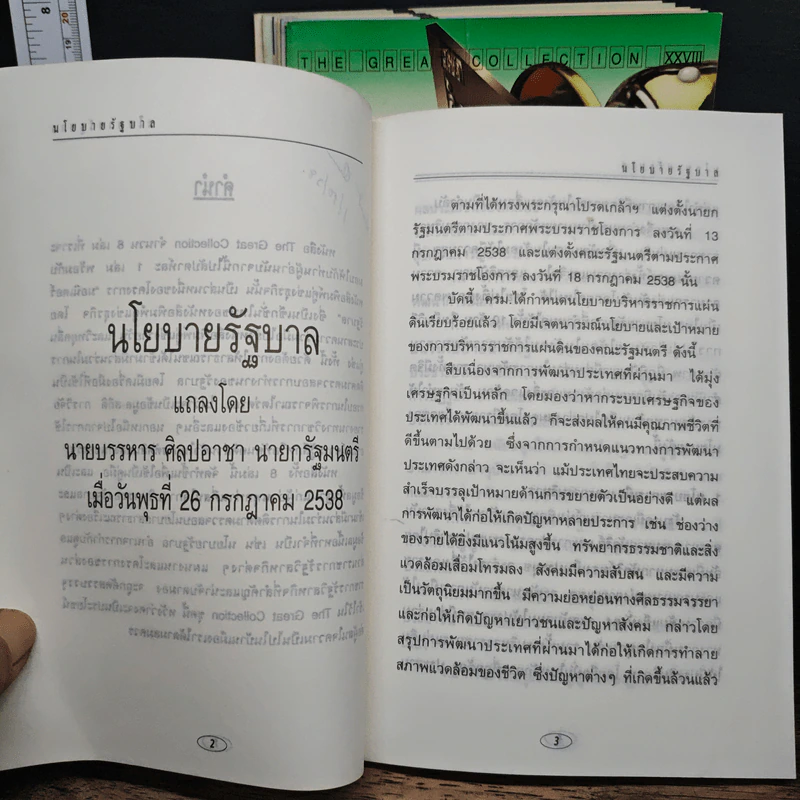 THE GREAT COLLECTION XXVIII
นโยบายรัฐบาล
นโยบายรัฐบาล
แถลงโดย
นายบรรหาร ศิลปอาชา นายกรัฐมนตรี
เมื่อวันพุธที่ 26 กรกฎาคม 2538
2
นโยบายรัฐบาล
ตามที่ได้ทรงพระกรุณาโปรดเกล้าฯ แต่งตั้งนายก
รัฐมนตรีตามประกาศพระบรมราชโองการ ลงวันที่ 13
กรกฎาคม 2538 และแต่งตั้งคณะรัฐมนตรีตามประกาศ
พระบรมราชโองการ ลงวันที่ 18 กรกฎาคม 2538 นั้น
บัดนี้ ครม.ได้กำหนดนโยบายบริหารราชการแผ่น
ดินเรียบร้อยแล้ว โดยมีเจตนารมณ์นโยบายและเป้าหมาย
ของการบริหารราชการแผ่นดินของคณะรัฐมนตรี ดังนี้
สืบเนื่องจากการพัฒนาประเทศที่ผ่านมา ได้มุ่ง
เศรษฐกิจเป็นหลัก โดยมองว่าหากระบบเศรษฐกิจของ
ประเทศได้พัฒนาขึ้นแล้ว ก็จะส่งผลให้คนมีคุณภาพชีวิตที่
ดีขึ้นตามไปด้วย ซึ่งจากการกำหนดแนวทางการพัฒนา
ประเทศดังกล่าว จะเห็นว่า แม้ประเทศไทยจะประสบความ
สำเร็จบรรลุเป้าหมายด้านการขยายตัวเป็นอย่างดี แต่ผล
การพัฒนาได้ก่อให้เกิดปัญหาหลายประการ เช่น ช่องว่าง
ของรายได้ยิ่งมีแนวโน้มสูงขึ้น ทรัพยากรธรรมชาติและสิ่ง
แวดล้อมเสื่อมโทรมลง สังคมมีความสับสน และมีความ
เป็นวัตถุนิยมมากขึ้น มีความย่อหย่อนทางศีลธรรมจรรยา
และก่อให้เกิดปัญหาเยาวชนและปัญหาสังคม กล่าวโดย
สรุปการพัฒนาประเทศที่ผ่านมาได้ก่อให้เกิดการทำลาย
สภาพแวดล้อมของชีวิต ซึ่งปัญหาต่างๆ ที่เกิดขึ้นล้วนแล้ว
3